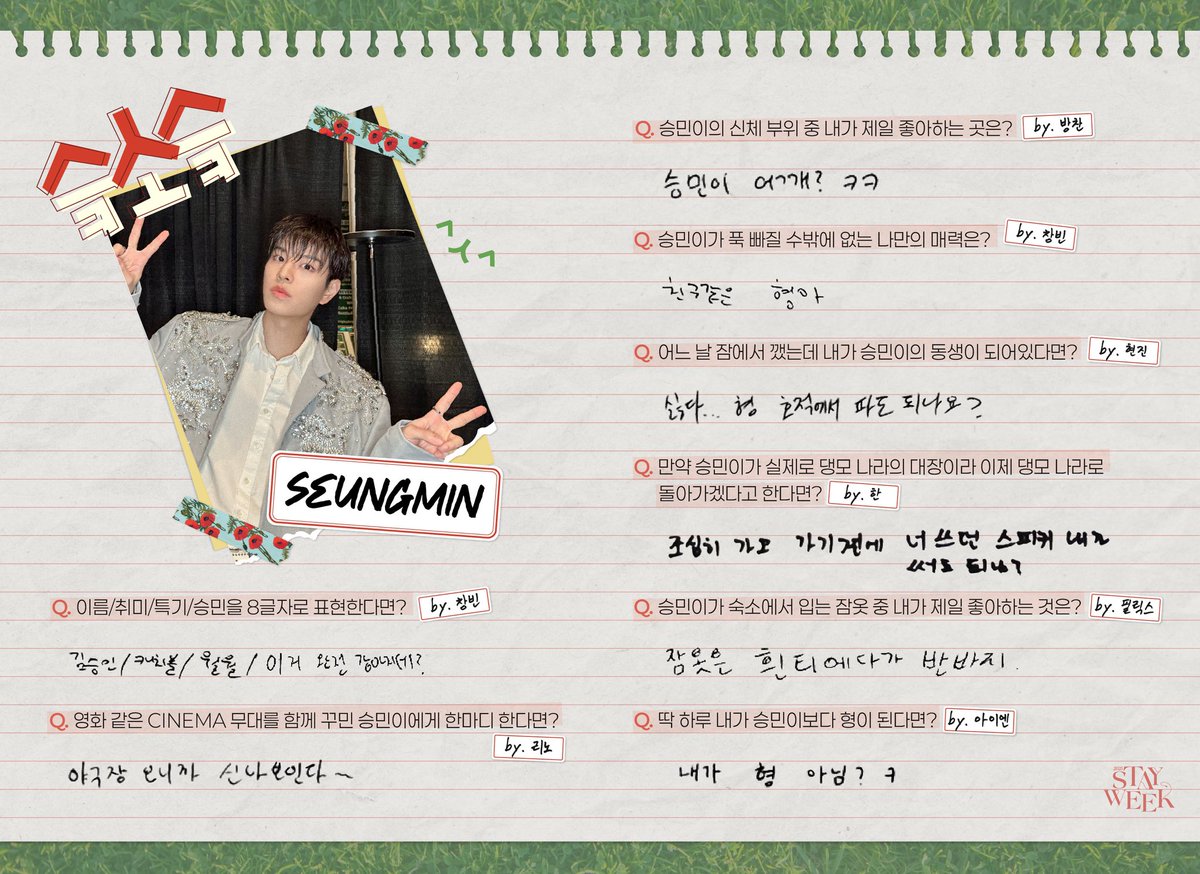 ㅅ
ㅋㅗㅋ
ㅅ
SEUNGMIN
Q. 이름/취미/특기/승민을 8글자로 표현한다면? by. 창빈
김승민/캐치볼/월월/이거 완전 강아지네?
Q. 영화 같은 CINEMA 무대를 함께 꾸민 승민이에게 한마디 한다면?
by. 리노
야구장 오니까 신나보인다~
Q. 승민이의 신체 부위 중 내가 제일 좋아하는 곳은? by. 방찬
승민이 어깨? ㅋㅋ
Q. 승민이가 푹 빠질 수밖에 없는 나만의 매력은? by. 창빈
친구같은 형아
Q. 어느 날 잠에서 깼는데 내가 승민이의 동생이 되어있다면? by. 현진
싫다... 형 호적에서 파도 되나요?
Q. 만약 승민이가 실제로 댕모 나라의 대장이라 이제 댕모 나라로
돌아가겠다고 한다면? by. 한
조심히 가고 가기전에 너 쓰던 스피커 내가
써도 되냐?
Q. 승민이가 숙소에서 입는 잠옷 중 내가 제일 좋아하는 것은? by. 필릭스
잠옷은 흰티에다가 반바지.
Q. 딱 하루 내가 승민이보다 형이 된다면? by. 아이엔
내가 형 아님? ㅋ
STAY
WEEK